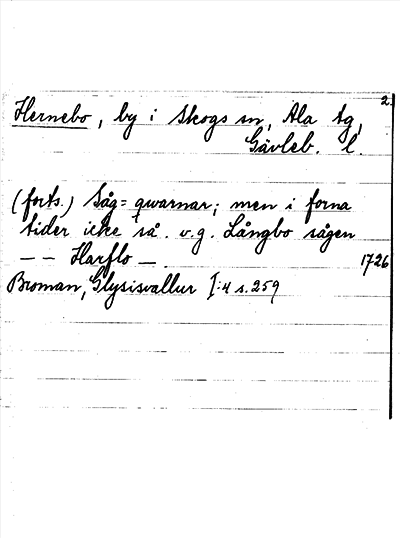 2.
Hernebo, by i Skogs sn, Ala tg,
Gävleb. l.
(forts.) Såg= qwarnar; men i forna
tider icke så. v.g. Långbo sågen
-- Harflo -
1726
Broman, Glysisvallur I:4 s. 259